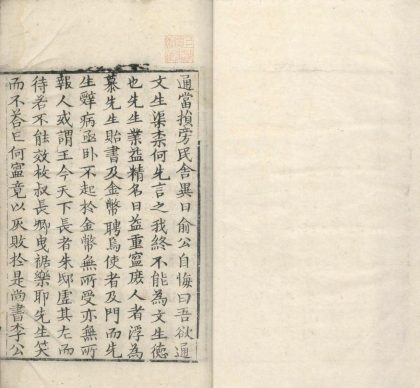 通當損旁民舍異日俞公自悔曰吾欲通
文生渠柰何先言之我終不能為文生德
也先生業益精名日益重寧庶人者浮為
慕先生貽書及金幣聘焉使者及門而先
生辭病亟卧不起於金幣無所受亦無所
報人或謂王今天下長者朱邸虛其左而
待若不能效枚叔長卿曳裾樂耶先生笑
而不荅已何寧竟以反敗於是尚書李公